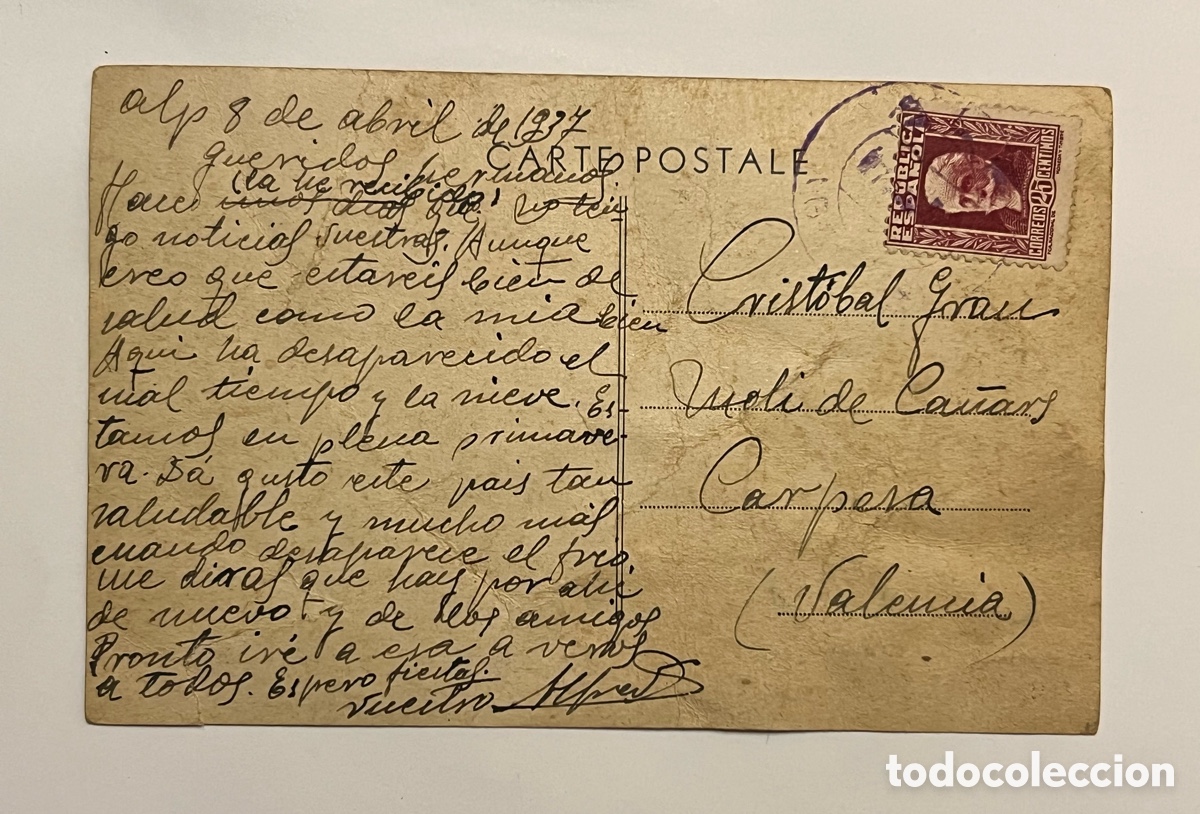 Alp 8 de abril de 1937
queridos hermanos
(la he recibido)
Hace unos dias que no ten
go noticias vuestras. Aunque
creo que estareis bien de
salud como la mia bien
Aqui ha desaparecido el
mal tiempo y la nieve. Es-
tamos en plena primave-
ra. Dá gusto este pais tan
saludable y mucho más
cuando desaparece el frio
me diras que hay por ahi
de nuevo y de los amigos
Pronto iré a esa a veros
a todos. Espero fiestas.
vuestro Alfredo
CARTE POSTALE
REPÚBLICA
ESPAÑOLA
CORREOS 25 CENTIMOS
Cristóbal Grau
Moli de Cañars
Carpesa
(Valencia)
todocoleccion